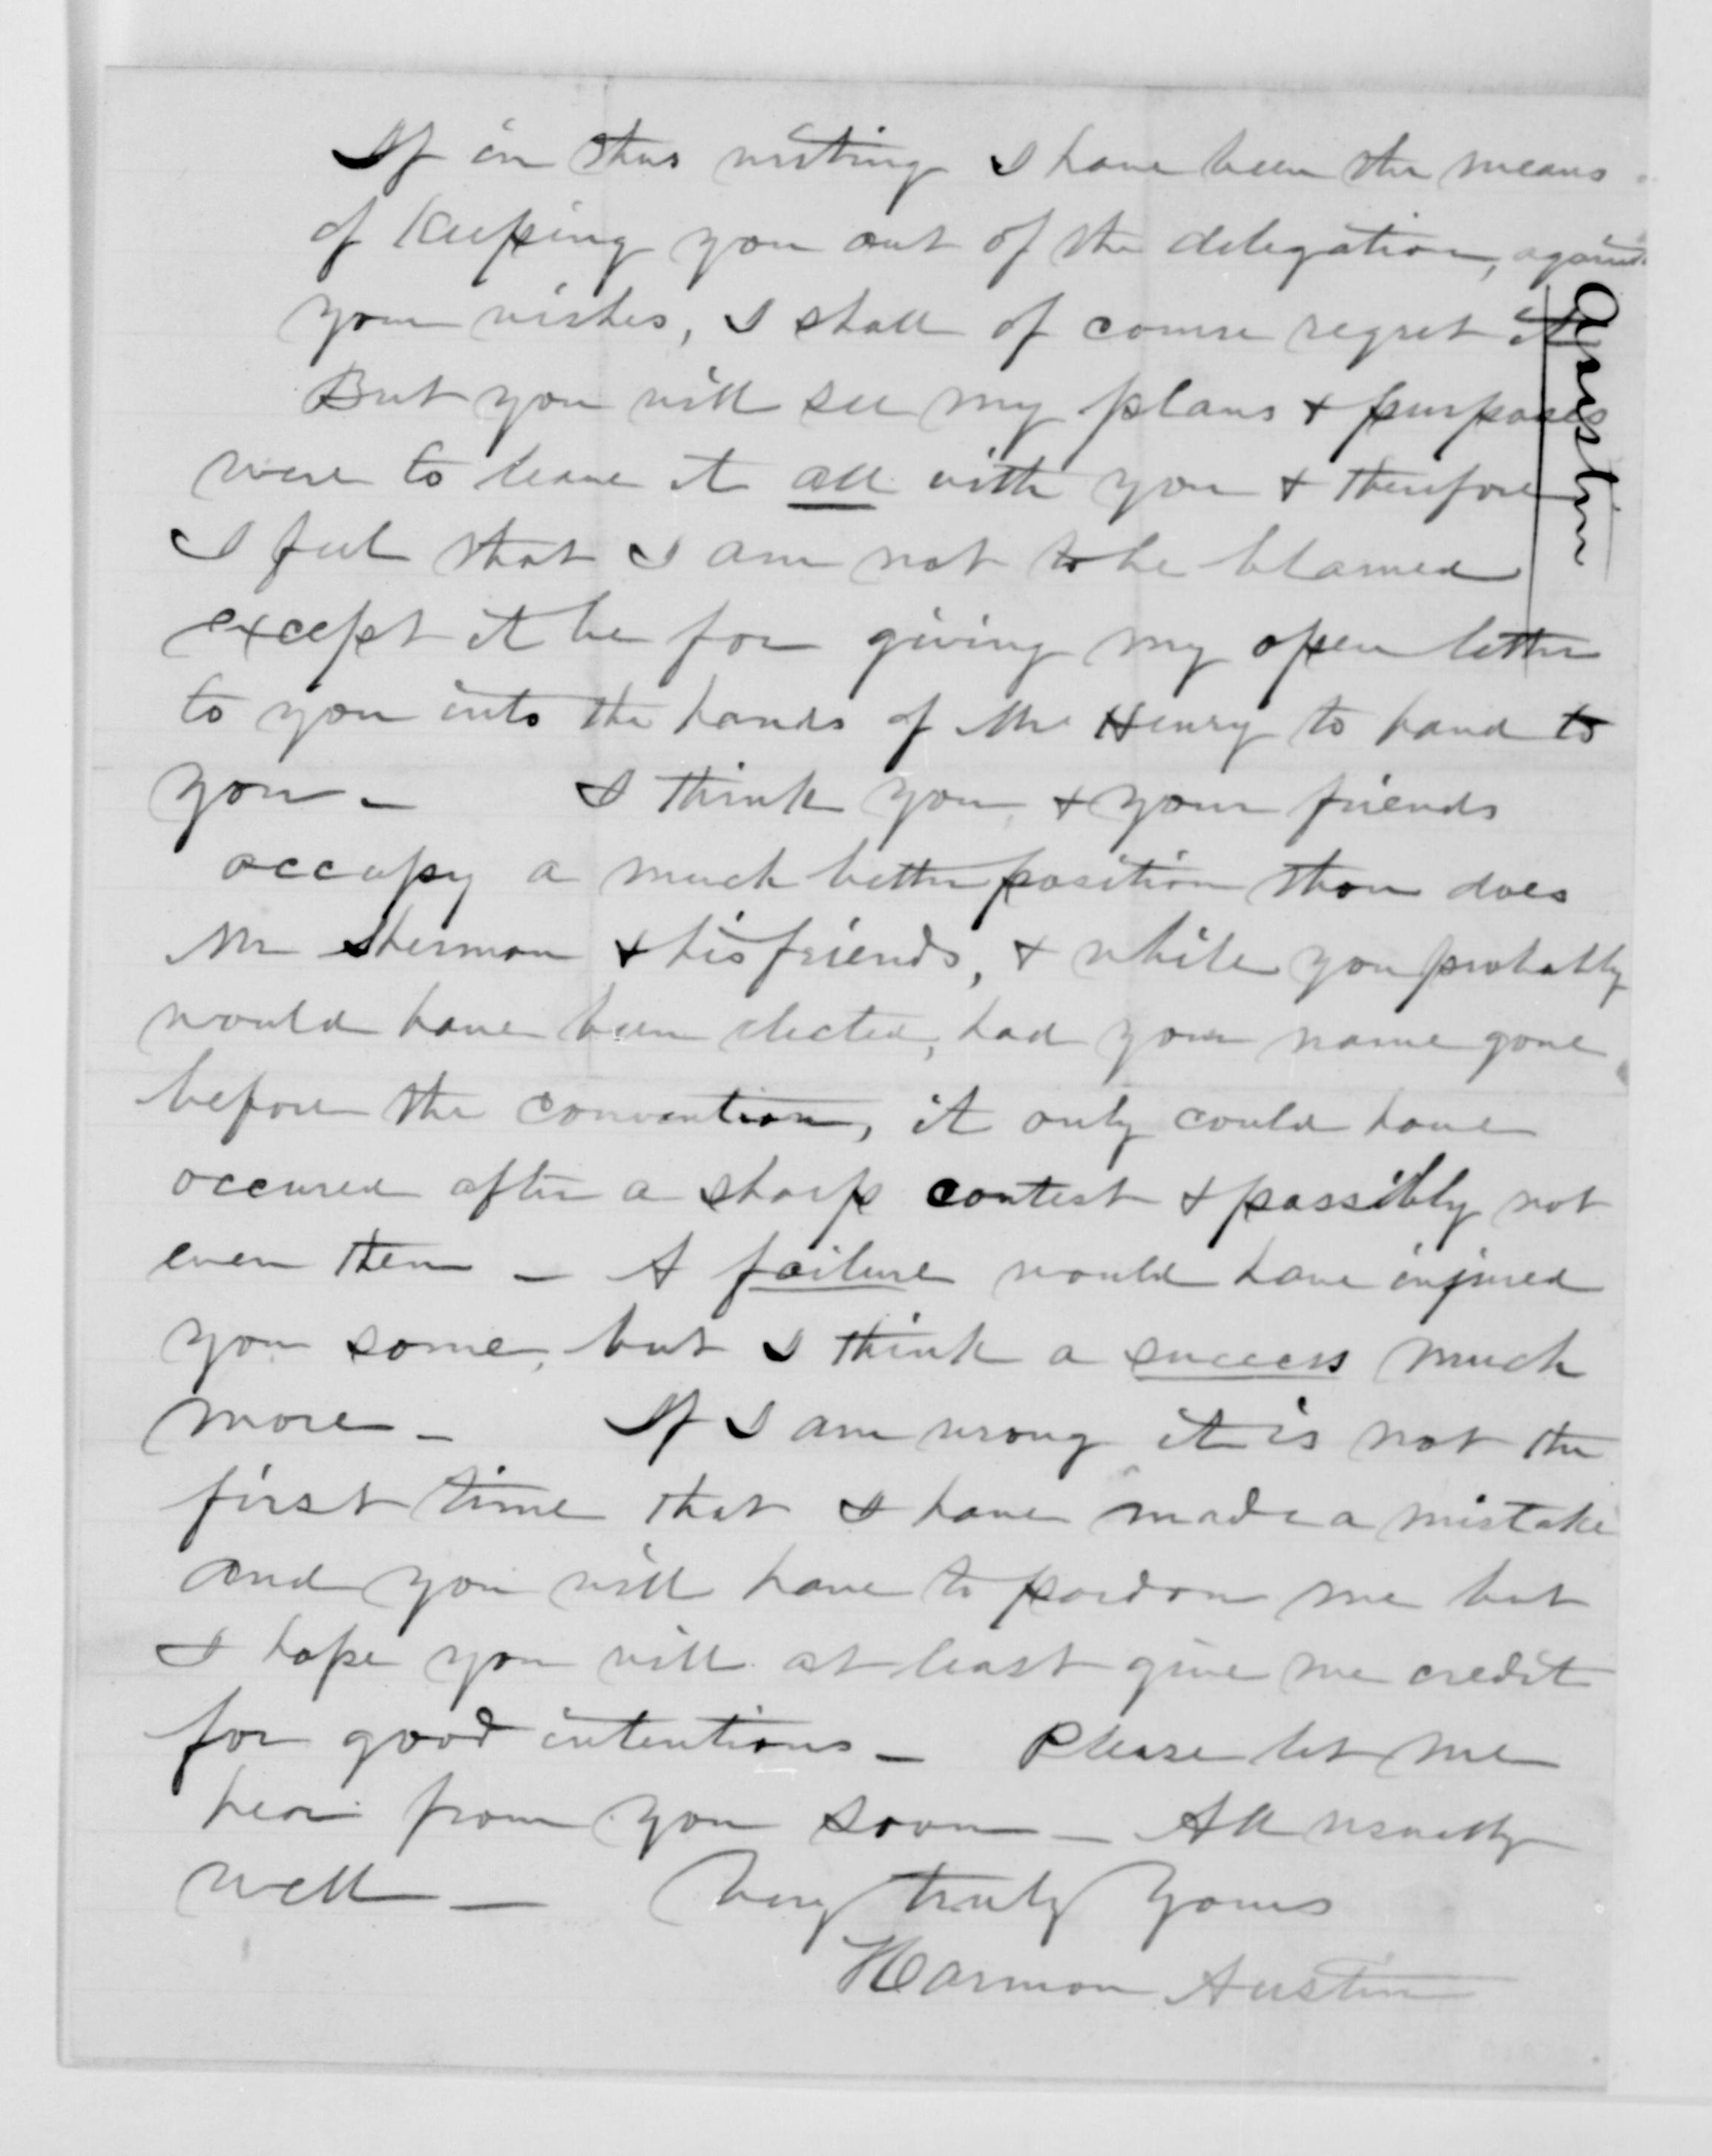 If in thus writing I have been the means
of keeping you out of the delegation, against
your wishes, I shall of course regret it
But you will see my plans & purposes
were to leave it all with you & therefore
I feel that I am not to be blamed
except it be for giving my open letter
to you into the hands of Mr Henry to hand to
you - I think you & your friends
occupy a much better position than does
Mr Sherman & his friends, & while you probably
would have been elected, had your name gone
before the convention, it only could have
occured after a sharp contest & possibly not
even then - A failure would have injured
you some, but I think a success much
more - If I am wrong it is not the
first time that I have made a mistake
and you will have to pardon me but
I hope you will at least give me credit
for good intentions - Please let me
hear from you soon - All usually
well - Very truly Yours
Harmon Austin
Austin